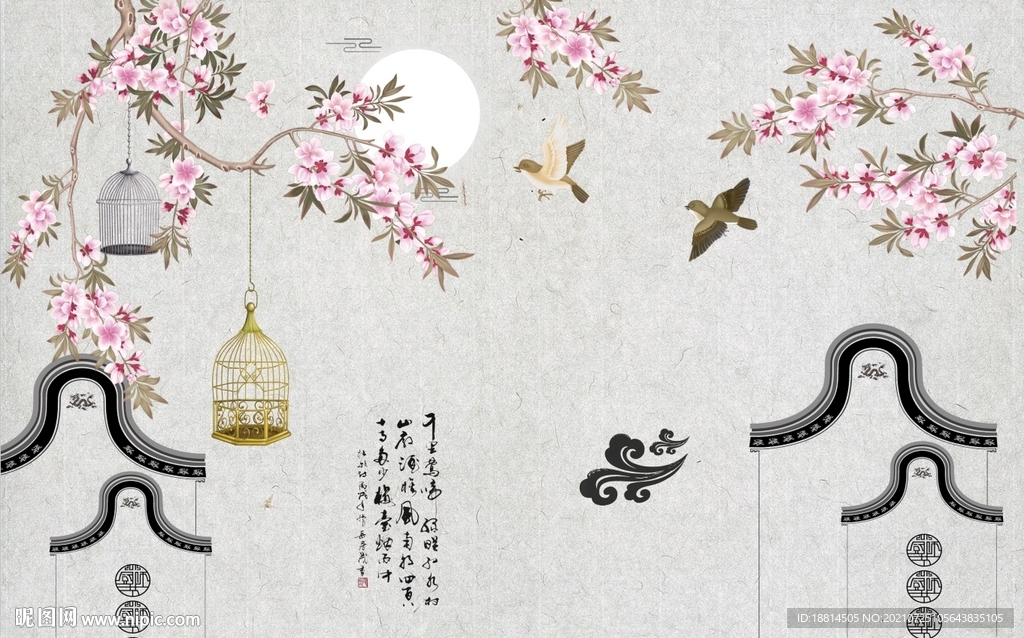 千里鶯啼綠映紅水村
山郭酒旗風南朝四百八
十寺多少樓臺烟雨中
昵图网 www.nipic.com
ID:18814505 NO:20210725105643835105